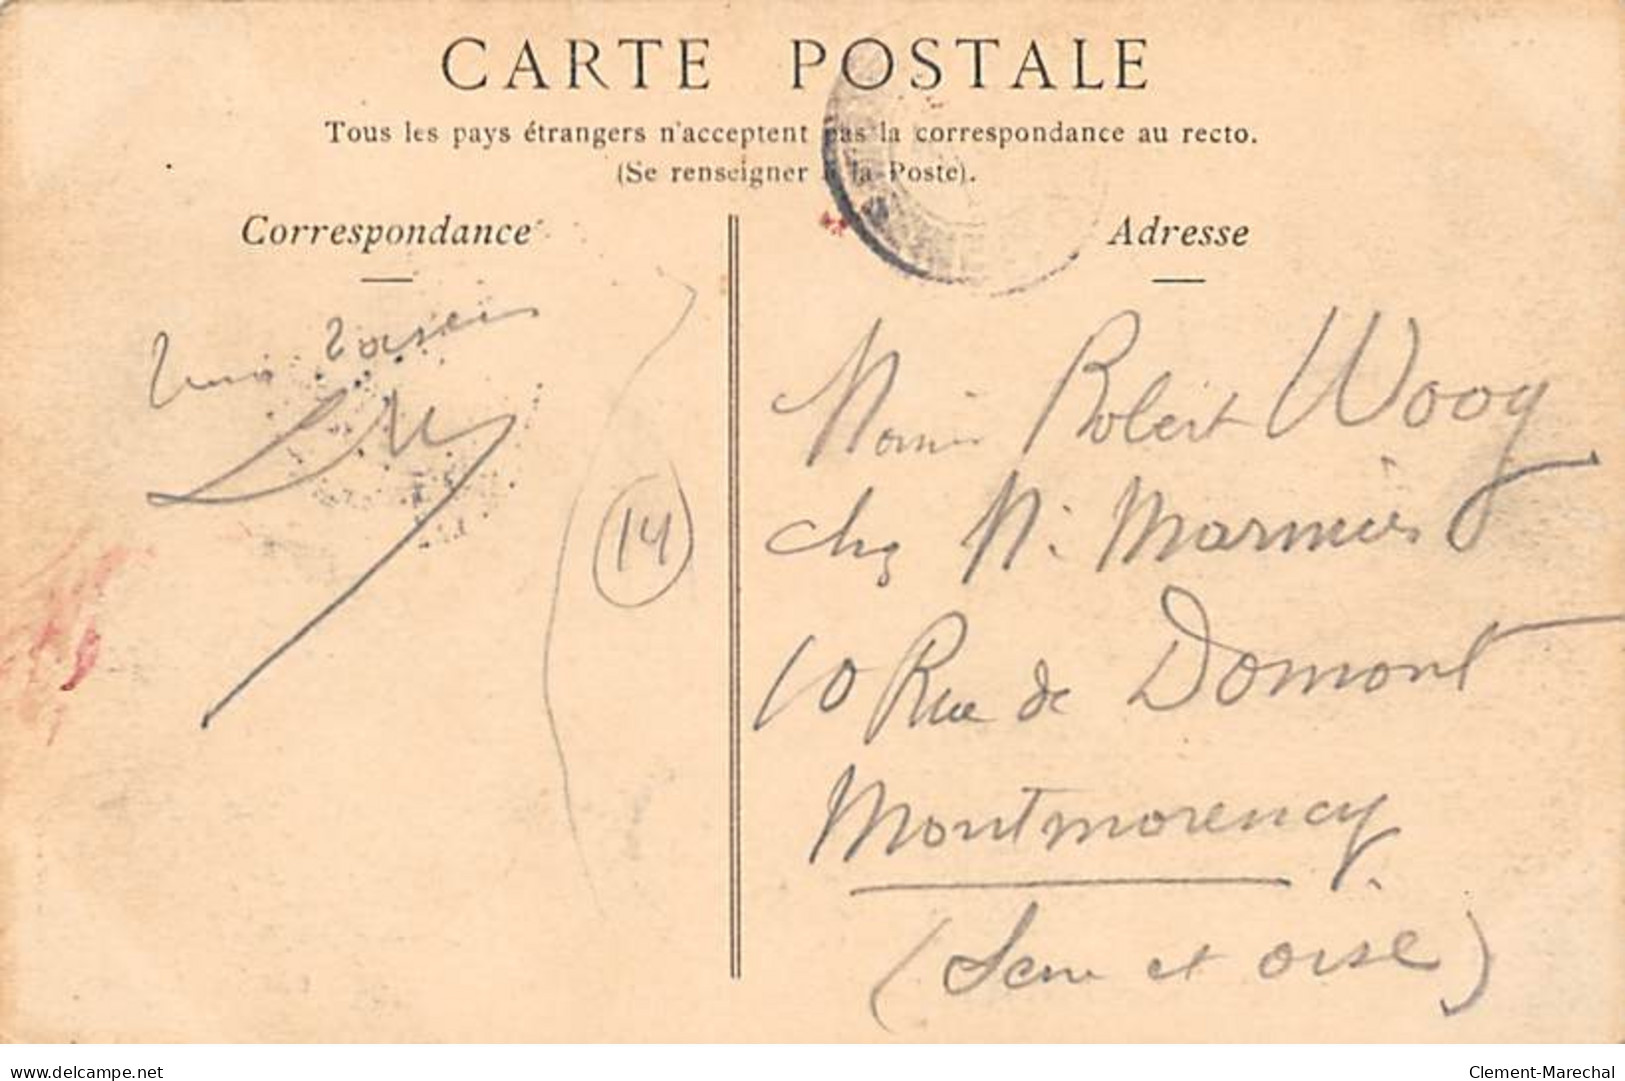 CARTE POSTALE
Tous les pays étrangers n'acceptent pas la correspondance au recto.
(Se renseigner à la Poste).
Correspondance
Adresse
14
Robert Woog
chez M. Marmier
10 Rue de Domont
Montmorency
(Seine et oise)
delcampe.net
Clement-Marechal